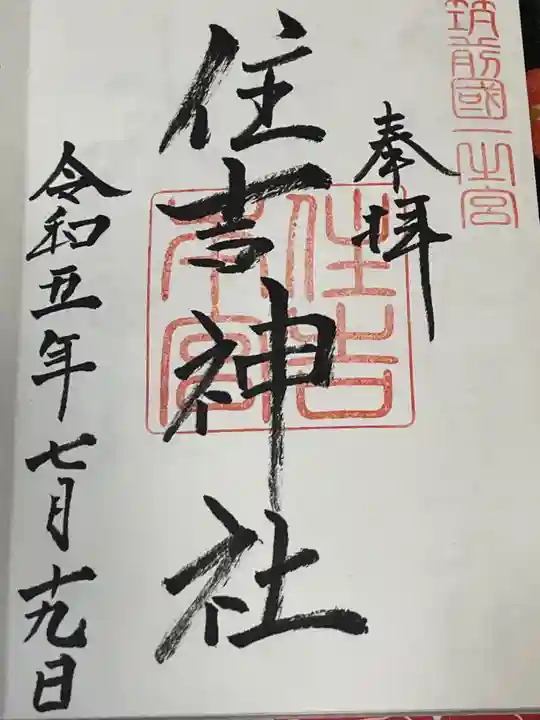 筑前國一之宮
奉拝
住吉神社
住吉
本宮
令和五年七月十九日